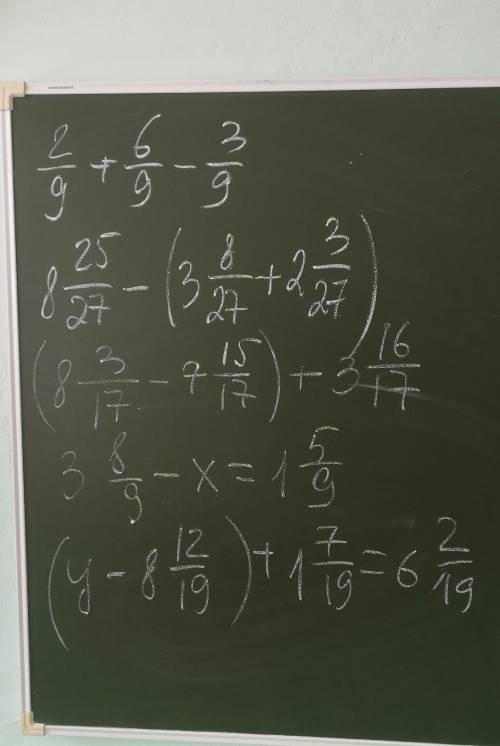 2/9 + 6/9 - 3/9
8 25/27 - (3 8/27 + 2 3/27)
(8 3/17 - 7 15/17) + 3 16/17
3 8/9 - x = 1 5/9
(y - 8 12/19) + 1 7/19 = 6 2/19